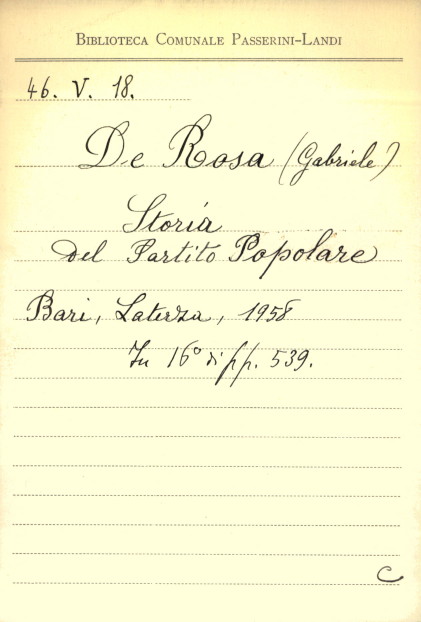 BIBLIOTECA COMUNALE PASSERINI-LANDI
46. V. 18.
De Rosa (Gabriele)
Storia
del Partito Popolare
Bari, Laterza, 1958
In 16° di pp. 539.
C